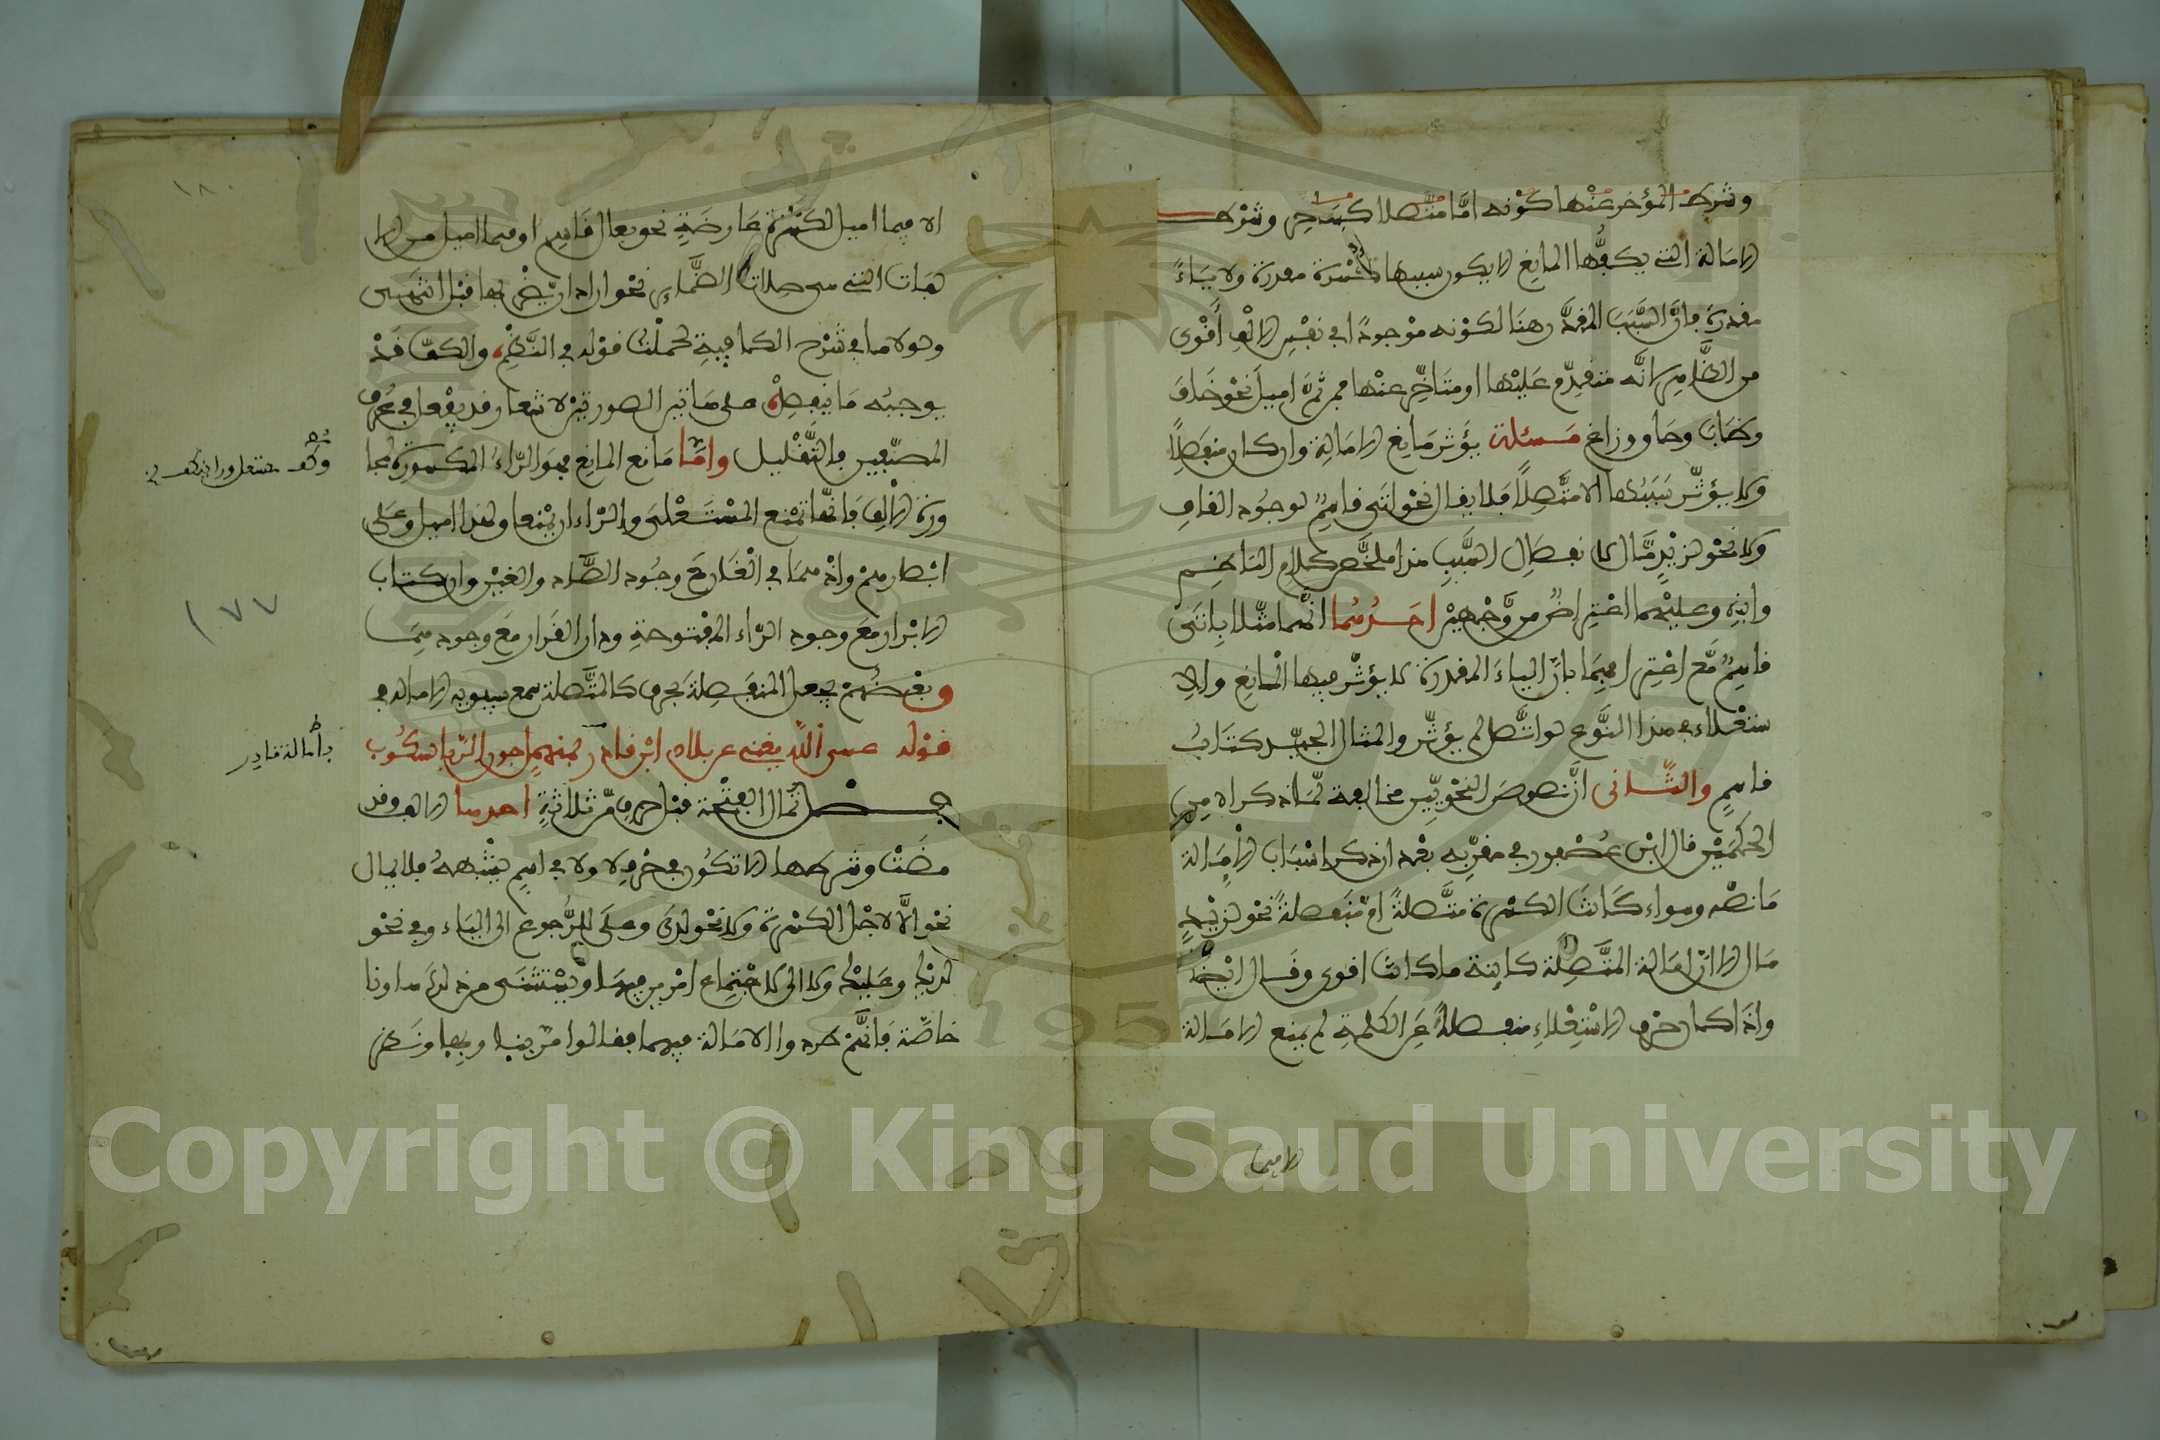 وشرط المؤخر عنها كونه اما متصلا كساحر وشرط
الامالة التي يكفها المانع الا يكون سببها كسرة مقدرة ولا ياء
مقدرة فان السبب المقدر هنا لكونه موجودا في نفس الالف أقوى
من الظاهر لانه متقدم عليها او متاخر عنها فمن ثم اميل نحو خاف
وطاب وحاق وزاغ مسئلة يؤثر مانع الامالة وان كان منفصلا
ولا يؤثر سببها الا متصلا فلا يمال نحو اتى قاسم لوجود القاف
ولا نحو لزيد مال لانفصال السبب هذا ملخص كلام الناظم
وابنه وعليهما اعتراض من وجهين احدهما انهما مثلا باتى
قاسم مع اعترافهما بان الياء المقدرة لا يؤثر فيها المانع والا
ستعلاء في هذا النوع لو اتصل لم يؤثر والمثال الجيد كتاب
قاسم والثاني ان نصوص النحويين مخالفة لما ذكراه من
الحكمين قال ابن عصفور في مقربه بعد ان ذكر اسباب الامالة
ما نصه وسواء كانت الكسرة متصلة ام منفصلة نحو لزيد
مال الا ان امالة المتصلة كاينة ما كانت اقوى وقال ايضا
واذا كان حرف الاستعلاء منفصلا عن الكلمة لم يمنع الامالة
الا فيما
١٨٠
الا فيما اميل لكسرة عارضة نحو بمال قاسم او فيما اميل من الا
لفات التي هي صلات الضماير نحو اراد ان يضربها قبل انتهى
ولولا ما في شرح الكافية لحملت قوله في النظم والكف قد
يوجبه ما ينفصل على هاتين الصورتين لاشعار قد يفعل في عرف
المصنفين بالتقليل واما مانع المانع فهو الراء المكسورة المجا
ورة الالف فانها تمنع المستعلي والراء ان يمنعا ولهذا اميل وعلى
ابصارهم واذ هما في الغار مع وجود الصاد والغين وان كتاب
الابرار مع وجود الراء المفتوحة ودار القرار مع وجودهما
وبعضهم يجعل المنفصلة بحرف كالمتصلة سمع سيبويه الامالة في
قوله عسى الله يغني عن بلاد ابن قادر بمنهمر جون الرباب سكوب
فصل تمال الفتحة قبل حرف من ثلاثة احدها الالف وقد
مضت وشرطها الا تكون في حرف ولا في اسم يشبهه فلا يمال
نحو الا لاجل الكسرة ولا نحو لدى وعلى للرجوع الى الياء وفي نحو
لديك وعليك ولا الى لاجتماع امرين فيها ويستثنى من ذلك ها ونا
خاصة فانهم طردوا الامالة فيهما فقالوا مر بنا وبها ونظر
١٧٧
بامالة قادر
Copyright © King Saud University
195